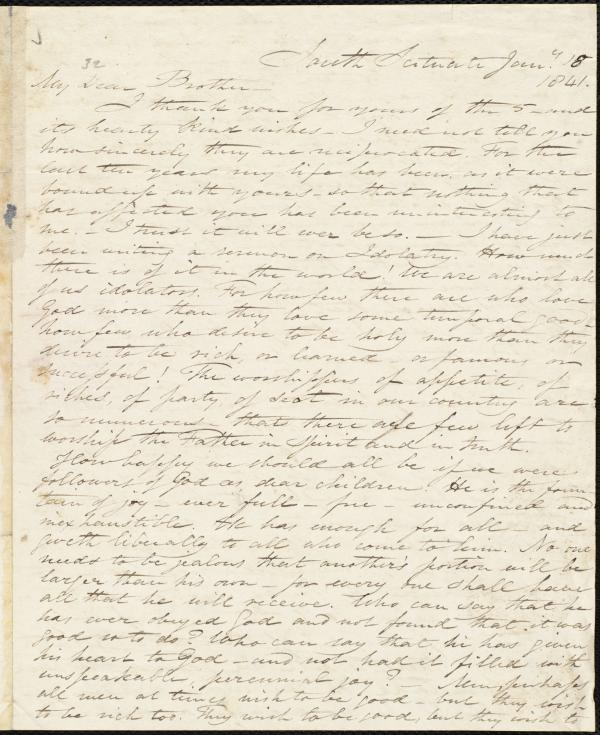 32
South Scituate Jany. 18
1841.
My Dear Brother –
I thank you for yours of the 5 – and
its hearty kind wishes – I need not tell you
how sincerely they are reciprocated. For the
last ten years my life has been, as it were
bound up with yours – so that nothing that
has affected you has been uninteresting to
me. – I trust it will ever be so. – I have just
been writing a sermon on Idolatry. How much
there is of it in the world! We are almost all
of us idolators. For how few there are who love
God more than they love some temporal good –
how few, who desire to be holy more than they
desire to be rich, or learned – or famous or
successful! The worshippers of appetite, of
riches, of party, of Sect in our country are
so numerous – that there are few left to
worship the Father in spirit and in truth.
How happy we should all be if we were
followers of God as dear children! He is the foun
tain of joy – ever full – free – unconfined and
inexhaustible. He has enough for all – and
giveth liberally to all who come to him. No one
needs to be jealous that another's portion will be
larger than his own – for every one shall have
all that he will receive. Who can say that he
has ever obeyed God and not found that it was
good so to do? Who can say that he has given
his heart to God – and not had it filled with
unspeakable, perennial joy? – Men, perhaps
all men at times wish to be good – but they wish
to be rich too. They wish to be good, but they wish to